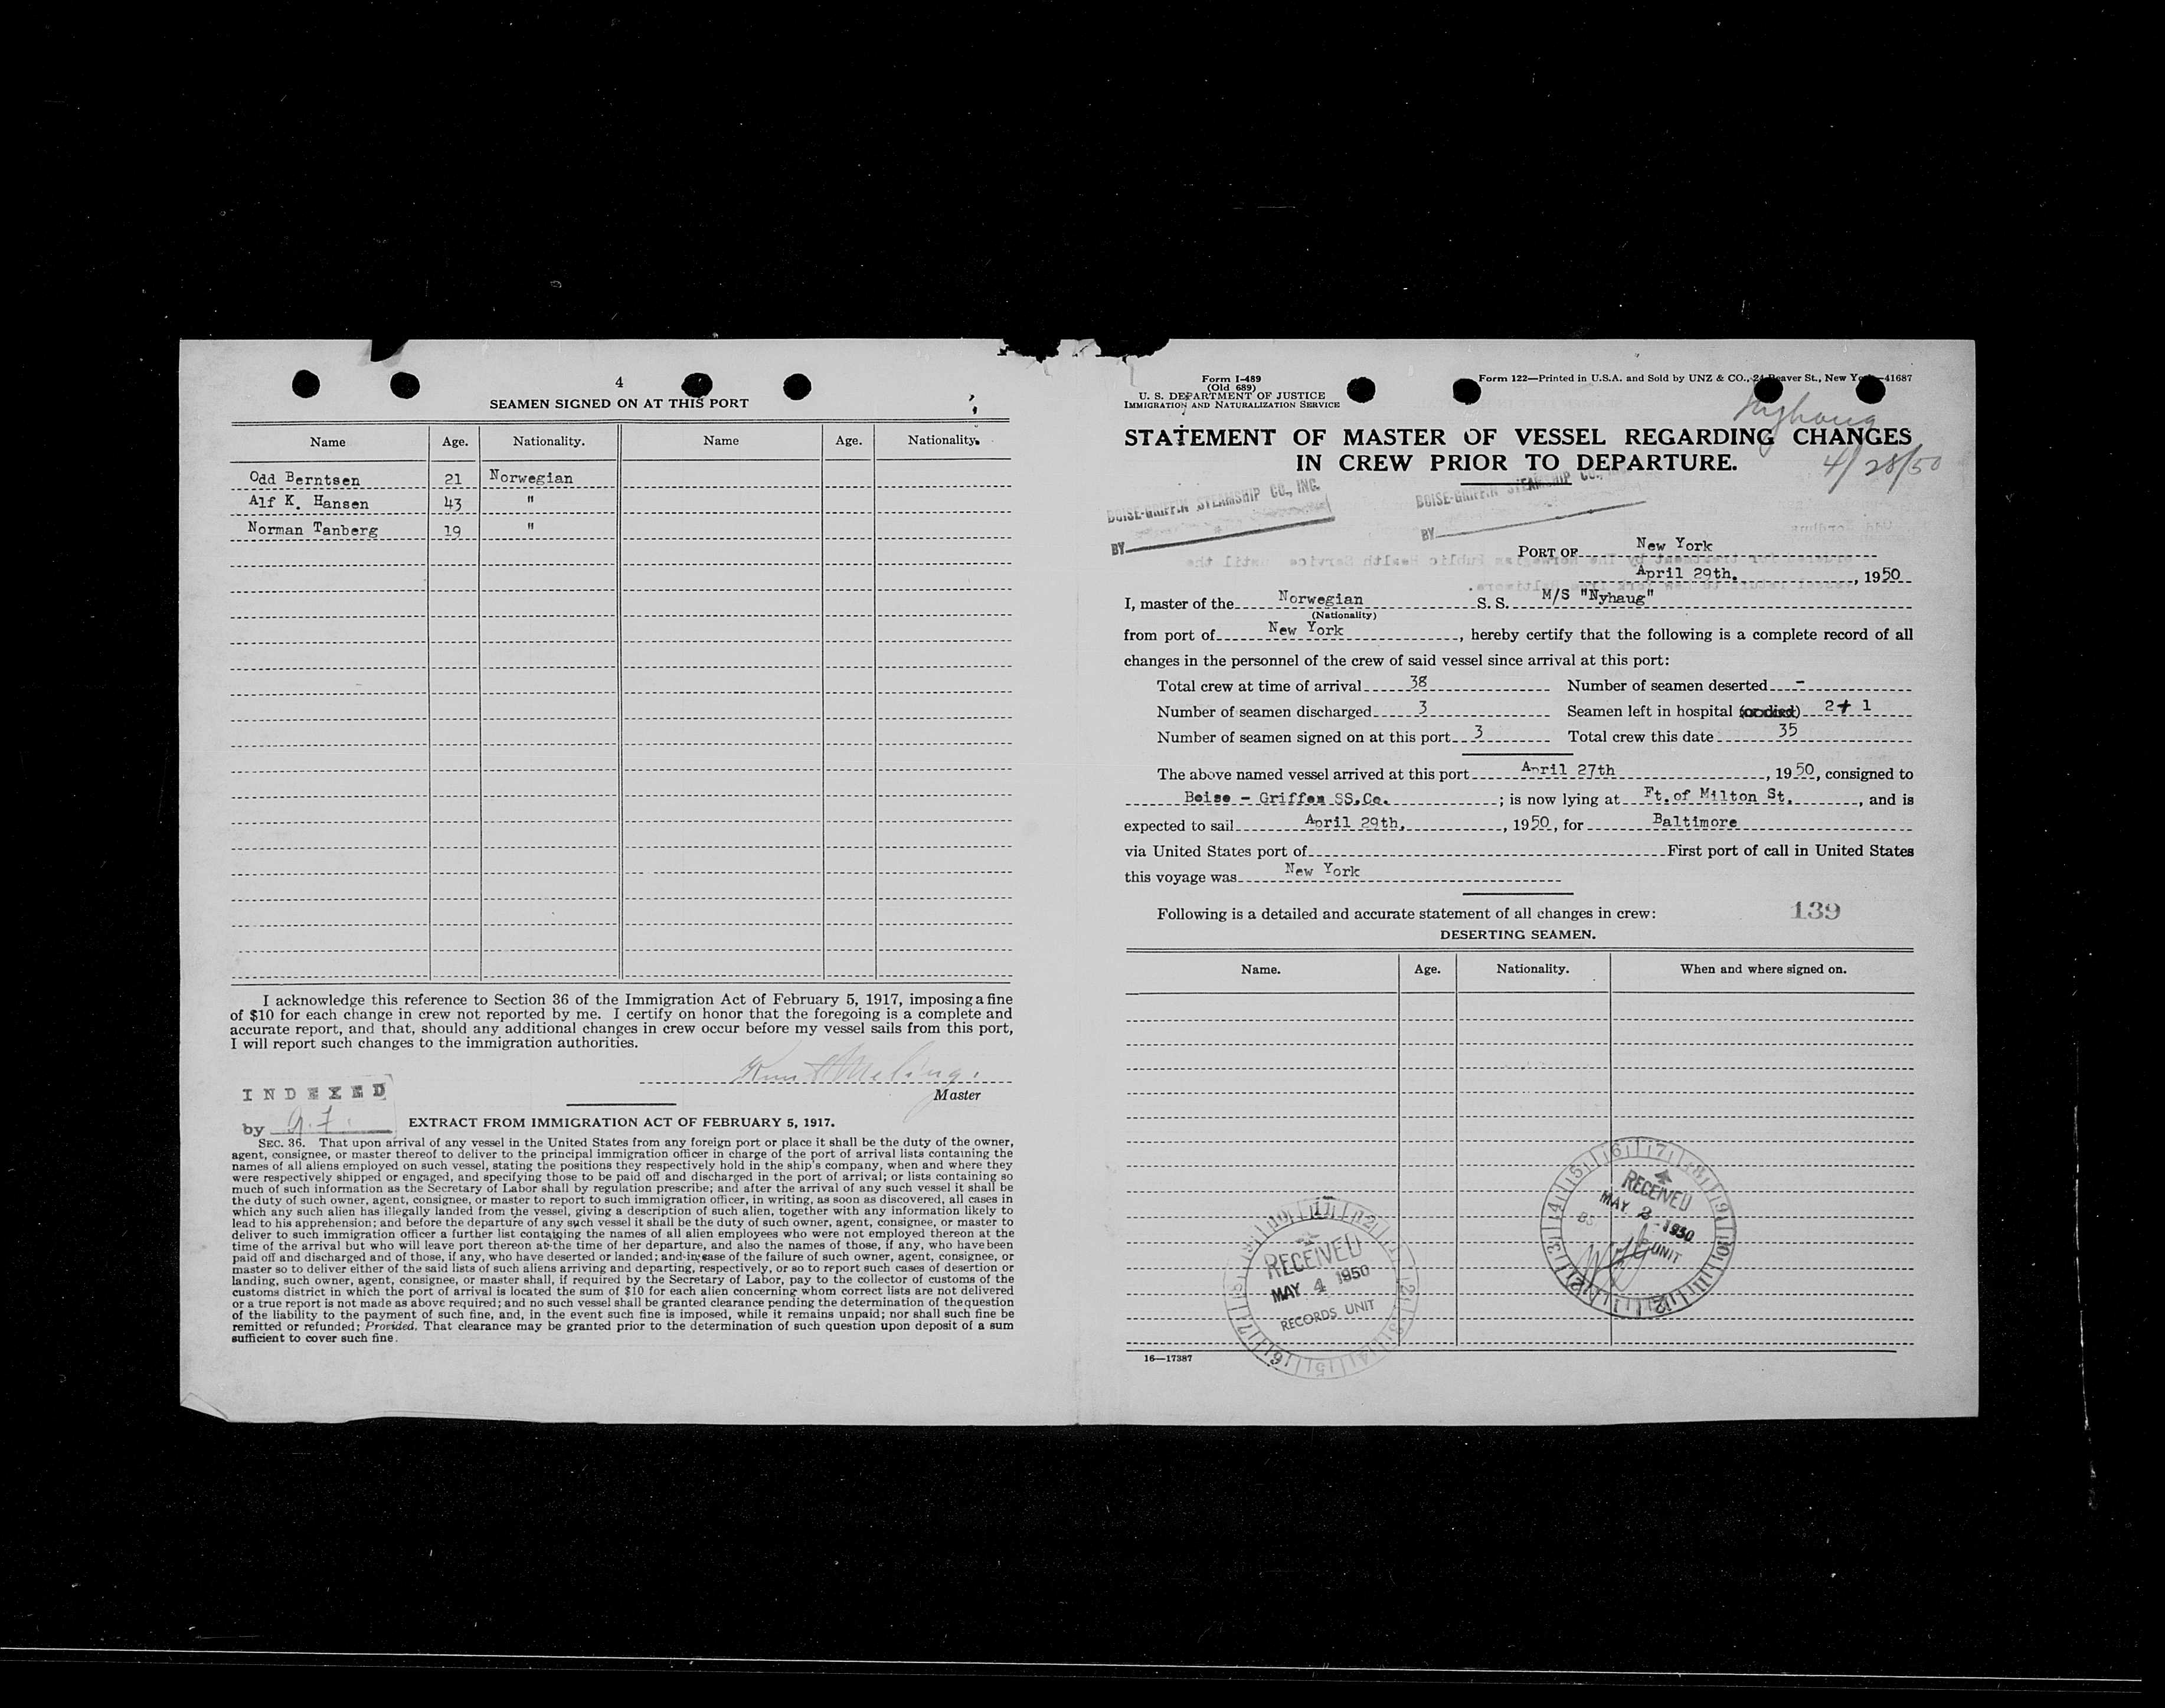 4
SEAMEN SIGNED ON AT THIS PORT
Name Age. Nationality. Name Age. Nationality.
Odd Berntsen 21 Norwegian
Alf K. Hansen 43 "
Norman Tanberg 19 "
I acknowledge this reference to Section 36 of the Immigration Act of February 5, 1917, imposing a fine
of $10 for each change in crew not reported by me. I certify on honor that the foregoing is a complete and
accurate report, and that, should any additional changes in crew occur before my vessel sails from this port,
I will report such changes to the immigration authorities.
Master
INDEXED
by
EXTRACT FROM IMMIGRATION ACT OF FEBRUARY 5, 1917.
SEC. 36. That upon arrival of any vessel in the United States from any foreign port or place it shall be the duty of the owner,
agent, consignee, or master thereof to deliver to the principal immigration officer in charge of the port of arrival lists containing the
names of all aliens employed on such vessel, stating the positions they respectively hold in the ship's company, when and where they
were respectively shipped or engaged, and specifying those to be paid off and discharged in the port of arrival; or lists containing so
much of such information as the Secretary of Labor shall by regulation prescribe; and after the arrival of any such vessel it shall be
the duty of such owner, agent, consignee, or master to report to such immigration officer, in writing, as soon as discovered, all cases in
which any such alien has illegally landed from the vessel, giving a description of such alien, together with any information likely to
lead to his apprehension; and before the departure of any such vessel it shall be the duty of such owner, agent, consignee, or master to
deliver to such immigration officer a further list containing the names of all alien employees who were not employed thereon at the
time of the arrival but who will leave port thereon at the time of her departure, and also the names of those, if any, who have been
paid off and discharged and of those, if any, who have deserted or landed; and in case of the failure of such owner, agent, consignee, or
master so to deliver either of the said lists of such aliens arriving and departing, respectively, or so to report such cases of desertion or
landing, such owner, agent, consignee, or master shall, if required by the Secretary of Labor, pay to the collector of customs of the
customs district in which the port of arrival is located the sum of $10 for each alien concerning whom correct lists are not delivered
or a true report is not made as above required; and no such vessel shall be granted clearance pending the determination of the question
of the liability to the payment of such fine, and, in the event such fine is imposed, while it remains unpaid; nor shall such fine be
remitted or refunded; Provided, That clearance may be granted prior to the determination of such question upon deposit of a sum
sufficient to cover such fine.
Form I-489
(Old 689)
U. S. DEPARTMENT OF JUSTICE
IMMIGRATION AND NATURALIZATION SERVICE
Form 122—Printed in U.S.A. and Sold by UNZ & CO., 24 Beaver St., New York—41687
Nyhaug
STATEMENT OF MASTER OF VESSEL REGARDING CHANGES
IN CREW PRIOR TO DEPARTURE.
4/28/50
BOISE-GRIFFIN STEAMSHIP CO., INC.
BY
BOISE-GRIFFIN STEAMSHIP CO.,
BY
PORT OF New York
April 29th. , 1950
I, master of the Norwegian S. S. M/S "Nyhaug"
(Nationality)
from port of New York , hereby certify that the following is a complete record of all
changes in the personnel of the crew of said vessel since arrival at this port:
Total crew at time of arrival 38 Number of seamen deserted -
Number of seamen discharged 3 Seamen left in hospital (or died) 2+ 1
Number of seamen signed on at this port 3 Total crew this date 35
The above named vessel arrived at this port April 27th , 1950, consigned to
Boise - Griffen SS.Co. ; is now lying at Ft. of Milton St. , and is
expected to sail April 29th. , 1950, for Baltimore
via United States port of First port of call in United States
this voyage was New York
Following is a detailed and accurate statement of all changes in crew: 139
DESERTING SEAMEN.
Name. Age. Nationality. When and where signed on.
RECEIVED
MAY 2 - 1950
UNIT
RECEIVED
MAY 4 1950
RECORDS UNIT
16—17387